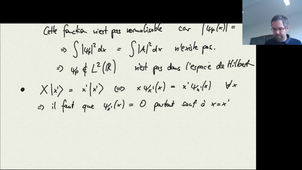 Cette fonction n'est pas normalisable car |ψp(x)| =
⇒ ∫|ψp|² dx = ∫|A|² dx n'existe pas.
⇒ ψp ∉ L²(ℝ) n'est pas dans l'espace de Hilbert
• X|x'⟩ = x'|x'⟩ ⟺ x ψx'(x) = x' ψx'(x) ∀x
⇒ il faut que ψx'(x) = 0 partout sauf à x=x'